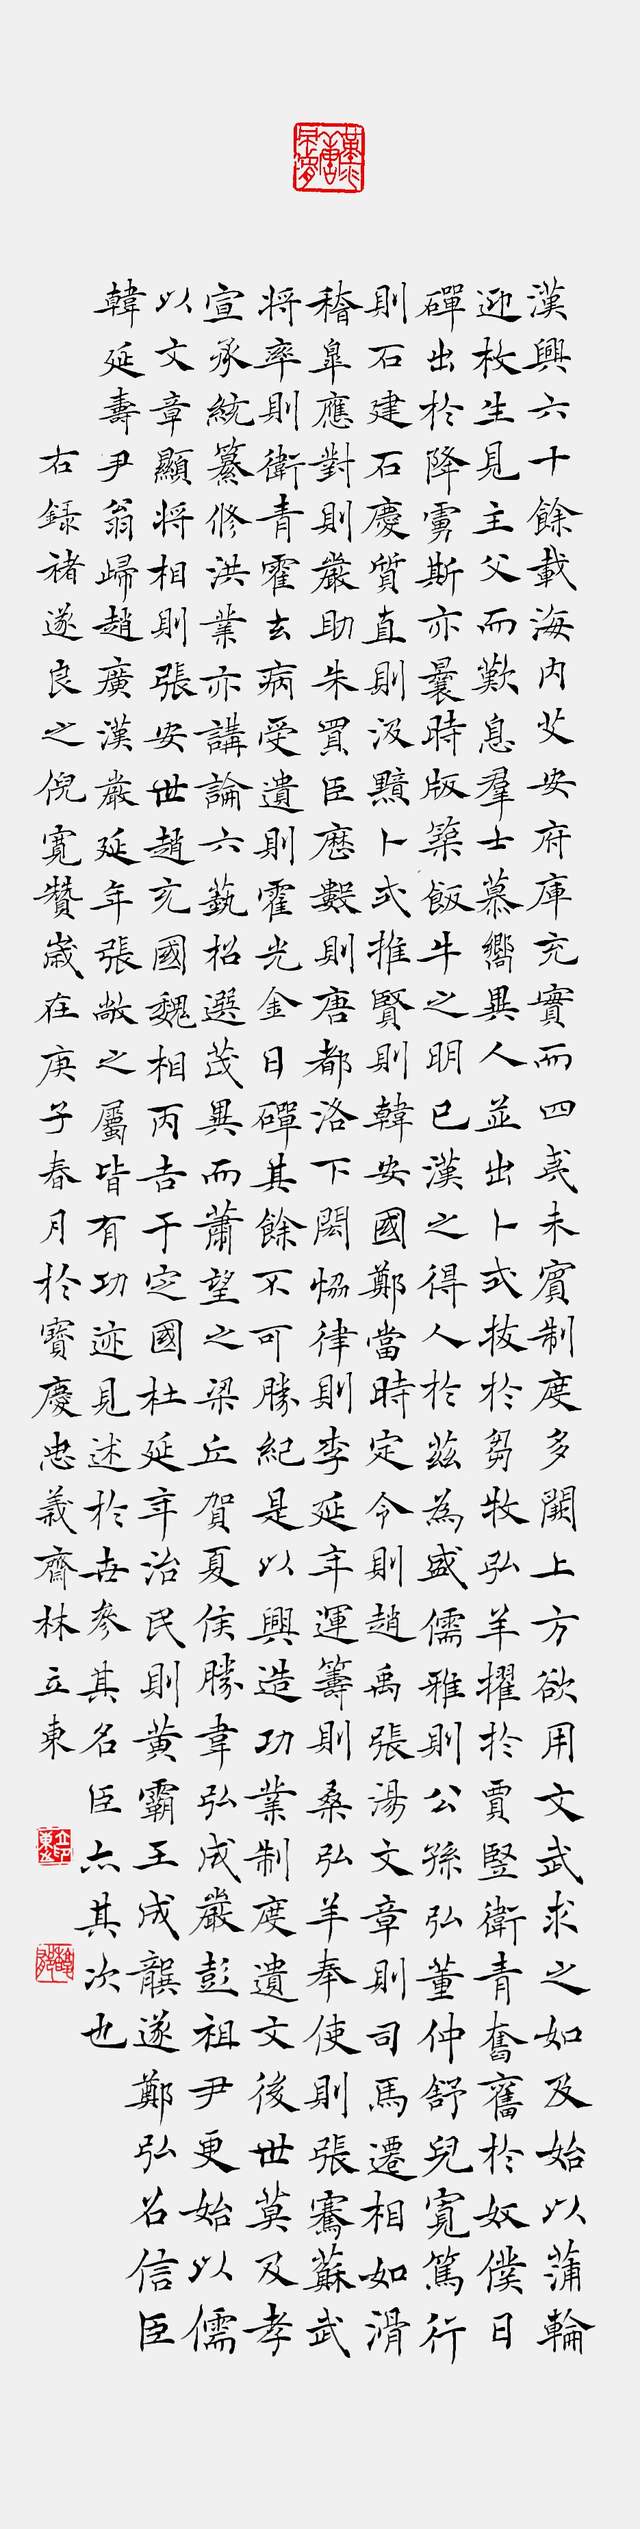 漢興六十餘載海内艾安府庫充實而四夷未賓制度多闕上方欲用文武求之如及始以蒲輪
迎枚生見主父而歎息羣士慕嚮異人並出卜式拔於芻牧弘羊擢於賈豎衛青奮舊於奴僕日
磾出於降虜斯亦曩時版築飯牛之明已漢之得人於茲為盛儒雅則公孫弘董仲舒兒寬篤行
則石建石慶質直則汲黯卜式推賢則韓安國鄭當時定令則趙禹張湯文章則司馬遷相如滑
稽皐應對則嚴助朱買臣歷數則唐都洛下閎恊律則李延年運籌則桑弘羊奉使則張騫蘇武
將率則衛青霍去病受遺則霍光金日磾其餘不可勝紀是以興造功業制度遺文後世莫及孝
宣承統纂修洪業亦講論六藝招選茂異而蕭望之梁丘賀夏侯勝韋弘成嚴彭祖尹更始以儒
以文章顯將相則張安世趙充國魏相丙吉于定國杜延年治民則黃霸王成龔遂鄭弘召信臣
韓延壽尹翁歸趙廣漢嚴延年張敞之屬皆有功迹見述於世參其名臣亦其次也
右録褚遂良之倪寬贊歲在庚子春月於寶慶忠義齋林立東